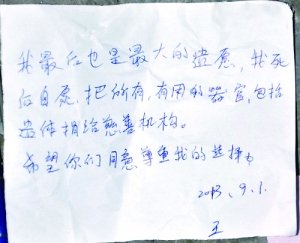 我最后也是最大的遗愿,我死
后自愿,把所有,有用的器官,包括
遗体捐给慈善机构。
希望你们同意尊重我的选择。
2013.9.1.
王